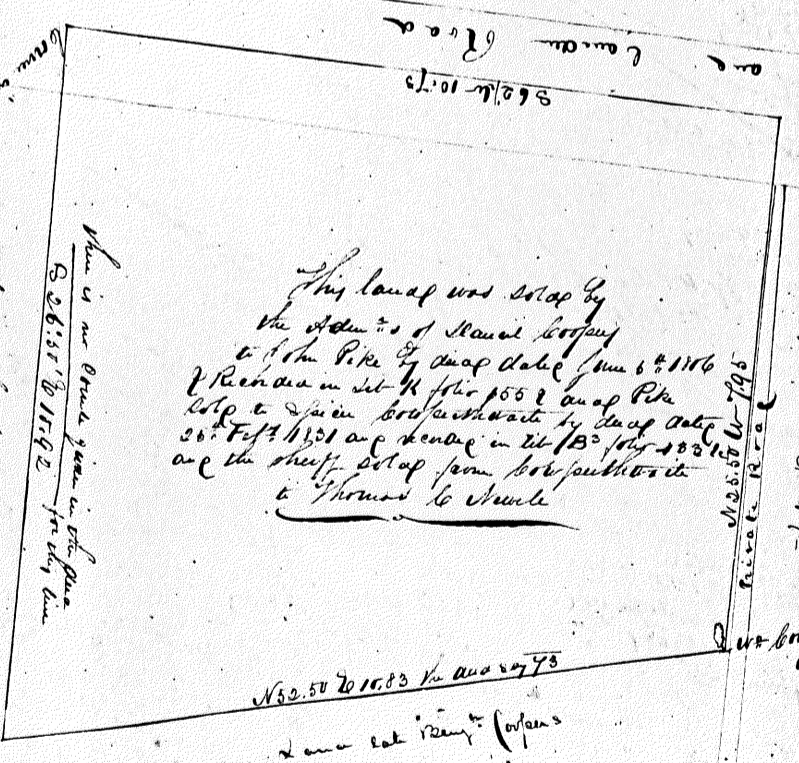 and Camden Road
S 62 W 10.73
This land was sold by
the Adm.rs of Daniel Cooper
to John Pike by deed dated June 6th 1806
& Recorded in Lib K folio 155 & and Pike
sold to Cowperthwaite by deed dated
26th Sept 1831 and recorded in Lib B3 folio
and the sheriff sold from Cowperthwaite
to Thomas C Newell
there is no Course given in the deed
S 26°30' E 10.92 for this line
N 25.50 W 795
Private Road
N 52.50 E 10.83 the deed says 73
Land late Benj.n Coopers